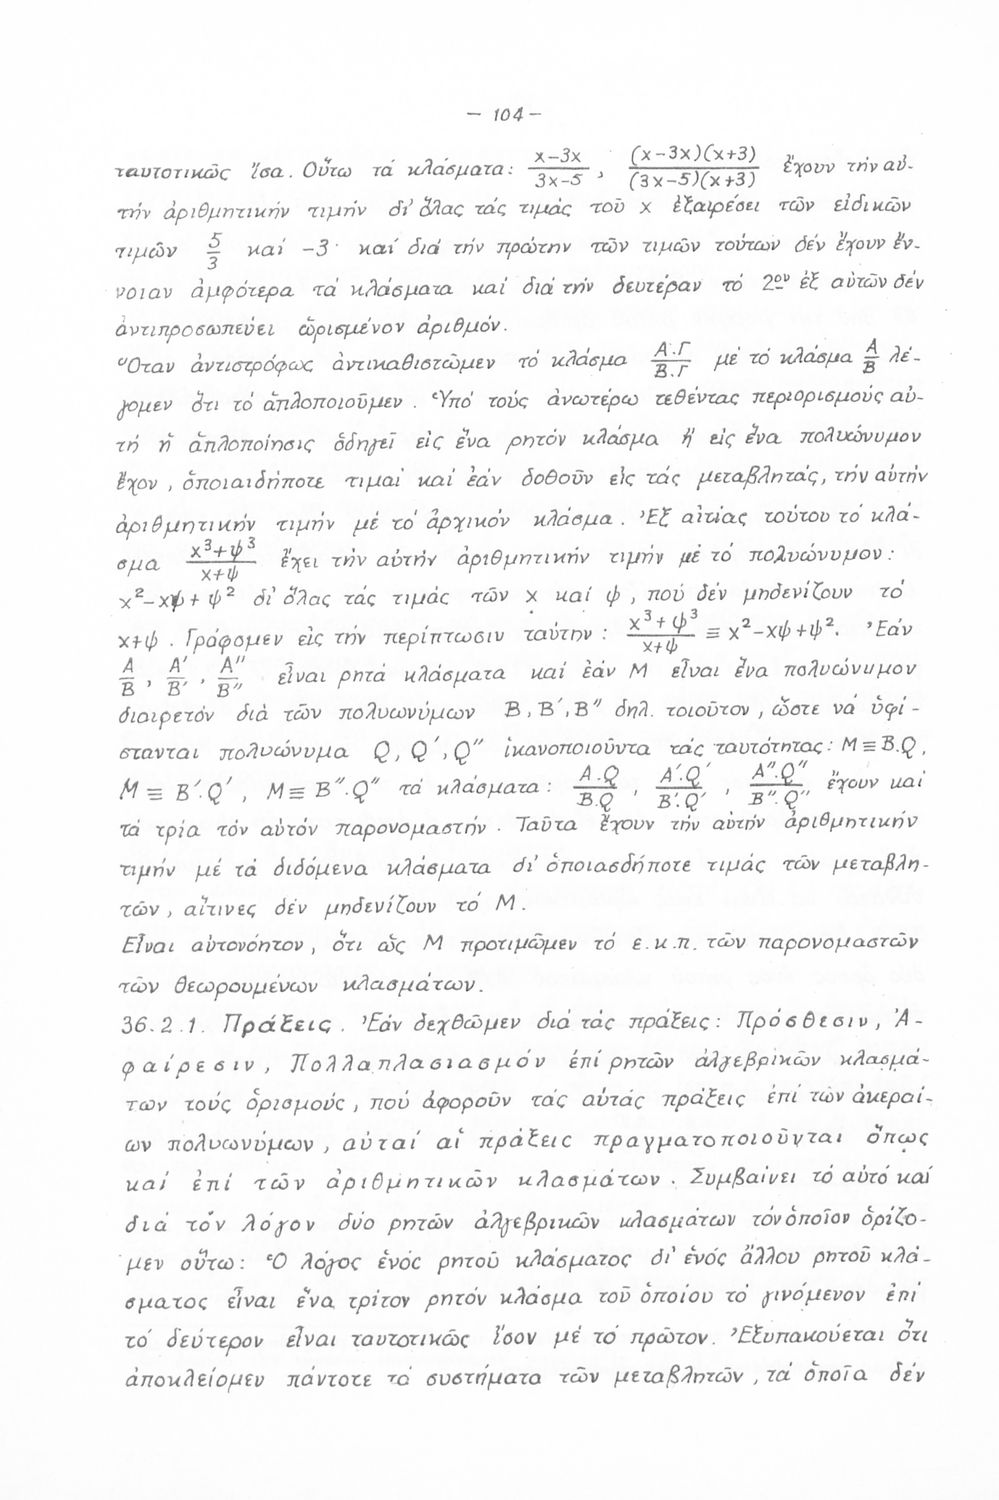 — 104 —
ταυτοτικῶς ἴσα. Οὕτω τά κλάσματα: x-3x / 3x-5 , (x-3x)(x+3) / (3x-5)(x+3) ἔχουν τήν αὐ-
τήν ἀριθμητικήν τιμήν δι' ὅλας τάς τιμάς τοῦ x ἐξαιρέσει τῶν εἰδικῶν
τιμῶν 5/3 καί -3· καί διά τήν πρώτην τῶν τιμῶν τούτων δέν ἔχουν ἔν-
νοιαν ἀμφότερα τά κλάσματα καί διά τήν δευτέραν τό 2ον ἐξ αὐτῶν δέν
ἀντιπροσωπεύει ὡρισμένον ἀριθμόν.
Ὅταν ἀντιστρόφως ἀντικαθιστῶμεν τό κλάσμα Α.Γ / Β.Γ μέ τό κλάσμα Α/Β λέ-
γομεν ὅτι τό ἁπλοποιοῦμεν. Ὑπό τούς ἀνωτέρω τεθέντας περιορισμούς αὐ-
τή ἡ ἁπλοποίησις ὁδηγεῖ εἰς ἕνα ρητόν κλάσμα ἤ εἰς ἕνα πολυώνυμον
ἔχον, ὁποιαιδήποτε τιμαί καί ἐάν δοθοῦν εἰς τάς μεταβλητάς, τήν αὐτήν
ἀριθμητικήν τιμήν μέ τό ἀρχικόν κλάσμα. Ἐξ αἰτίας τούτου τό κλά-
σμα x³+ψ³ / x+ψ ἔχει τήν αὐτήν ἀριθμητικήν τιμήν μέ τό πολυώνυμον:
x²-xψ+ψ² δι' ὅλας τάς τιμάς τῶν x καί ψ, πού δέν μηδενίζουν τό
x+ψ. Γράφομεν εἰς τήν περίπτωσιν ταύτην: x³+ψ³ / x+ψ ≡ x²-xψ+ψ². Ἐάν
Α/Β , Α'/Β' , Α''/Β'' εἶναι ρητά κλάσματα καί ἐάν Μ εἶναι ἕνα πολυώνυμον
διαιρετόν διά τῶν πολυωνύμων Β, Β', Β'' δηλ. τοιοῦτον, ὥστε νά ὑφί-
στανται πολυώνυμα Q, Q', Q'' ἱκανοποιοῦντα τάς ταυτότητας: Μ≡Β.Q,
Μ≡Β'.Q', Μ≡Β''.Q'' τά κλάσματα: Α.Q / Β.Q , Α'.Q' / Β'.Q' , Α''.Q'' / Β''.Q'' ἔχουν καί
τά τρία τόν αὐτόν παρονομαστήν. Ταῦτα ἔχουν τήν αὐτήν ἀριθμητικήν
τιμήν μέ τά διδόμενα κλάσματα δι' ὁποιασδήποτε τιμάς τῶν μεταβλη-
τῶν, αἵτινες δέν μηδενίζουν τό Μ.
Εἶναι αὐτονόητον, ὅτι ὡς Μ προτιμῶμεν τό ε.κ.π. τῶν παρονομαστῶν
τῶν θεωρουμένων κλασμάτων.
36.2.1. Πράξεις. Ἐάν δεχθῶμεν διά τάς πράξεις: Πρόσθεσιν, Ἀ-
φαίρεσιν, Πολλαπλασιασμόν ἐπί ρητῶν ἀλγεβρικῶν κλασμά-
των τούς ὁρισμούς, πού ἀφοροῦν τάς αὐτάς πράξεις ἐπί τῶν ἀκεραί-
ων πολυωνύμων, αὐταί αἱ πράξεις πραγματοποιοῦνται ὅπως
καί ἐπί τῶν ἀριθμητικῶν κλασμάτων. Συμβαίνει τό αὐτό καί
διά τόν λόγον δύο ρητῶν ἀλγεβρικῶν κλασμάτων τόν ὁποῖον ὁρίζο-
μεν οὕτω: Ὁ λόγος ἑνός ρητοῦ κλάσματος δι' ἑνός ἄλλου ρητοῦ κλά-
σματος εἶναι ἕνα τρίτον ρητόν κλάσμα τοῦ ὁποίου τό γινόμενον ἐπί
τό δεύτερον εἶναι ταυτοτικῶς ἴσον μέ τό πρῶτον. Ἐξυπακούεται ὅτι
ἀποκλείομεν πάντοτε τά συστήματα τῶν μεταβλητῶν, τά ὁποῖα δέν